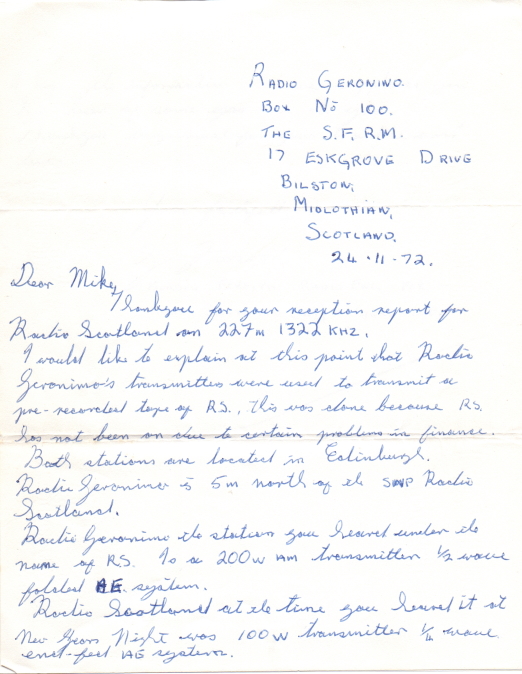 RADIO GERONIMO.
BOX No 100.
THE S.F.R.M.
17 ESKGROVE DRIVE
BILSTON,
MIDLOTHIAN,
SCOTLAND,
24.11.72.
Dear Mike,
Thankyou for your reception report for
Radio Scotland on 227m 1322 KHZ.
I would like to explain at this point that Radio
Geronimo's transmitters were used to transmit a
pre-recorded tape of RS., this was done because RS.
has not been on due to certain problems in finance.
Both stations are located in Edinburgh.
Radio Geronimo is 5m north of the Radio
Scotland.
Radio Geronimo the station you heard under the
name of RS. Is a 200W AM transmitter 1/2 wave
folded AE system.
Radio Scotland at the time you heard it at
New Years Night was 100W transmitter wave
end-fed AE system.